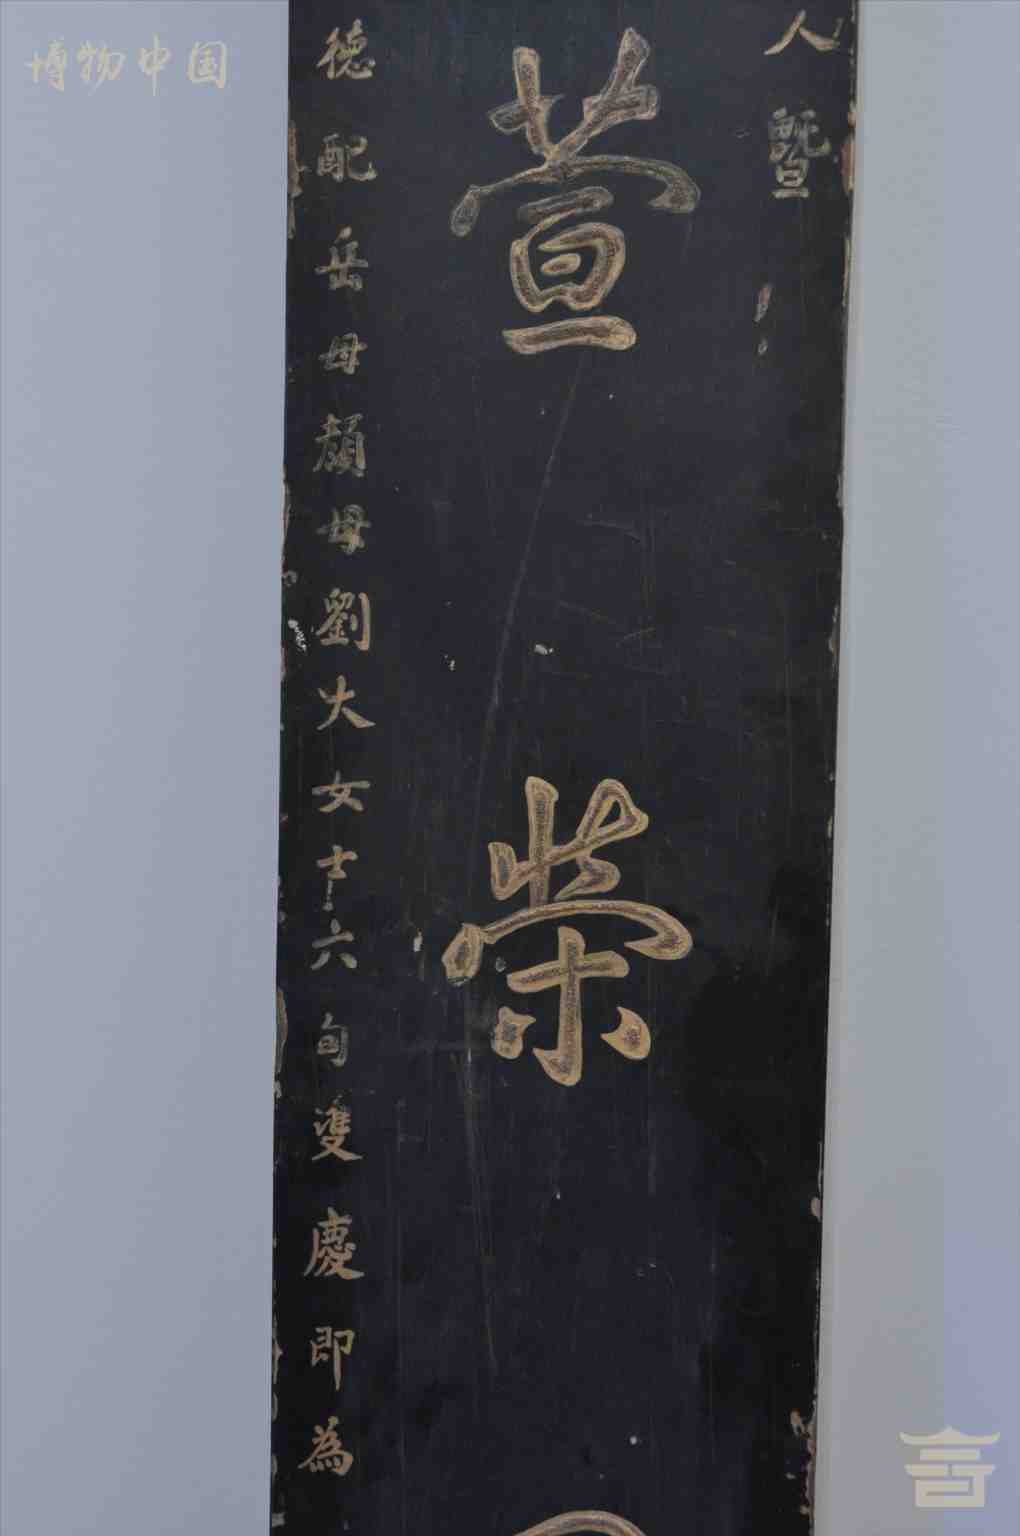 博物中国
人暨
萱榮
德配岳母顏母劉大女士六旬雙慶即為